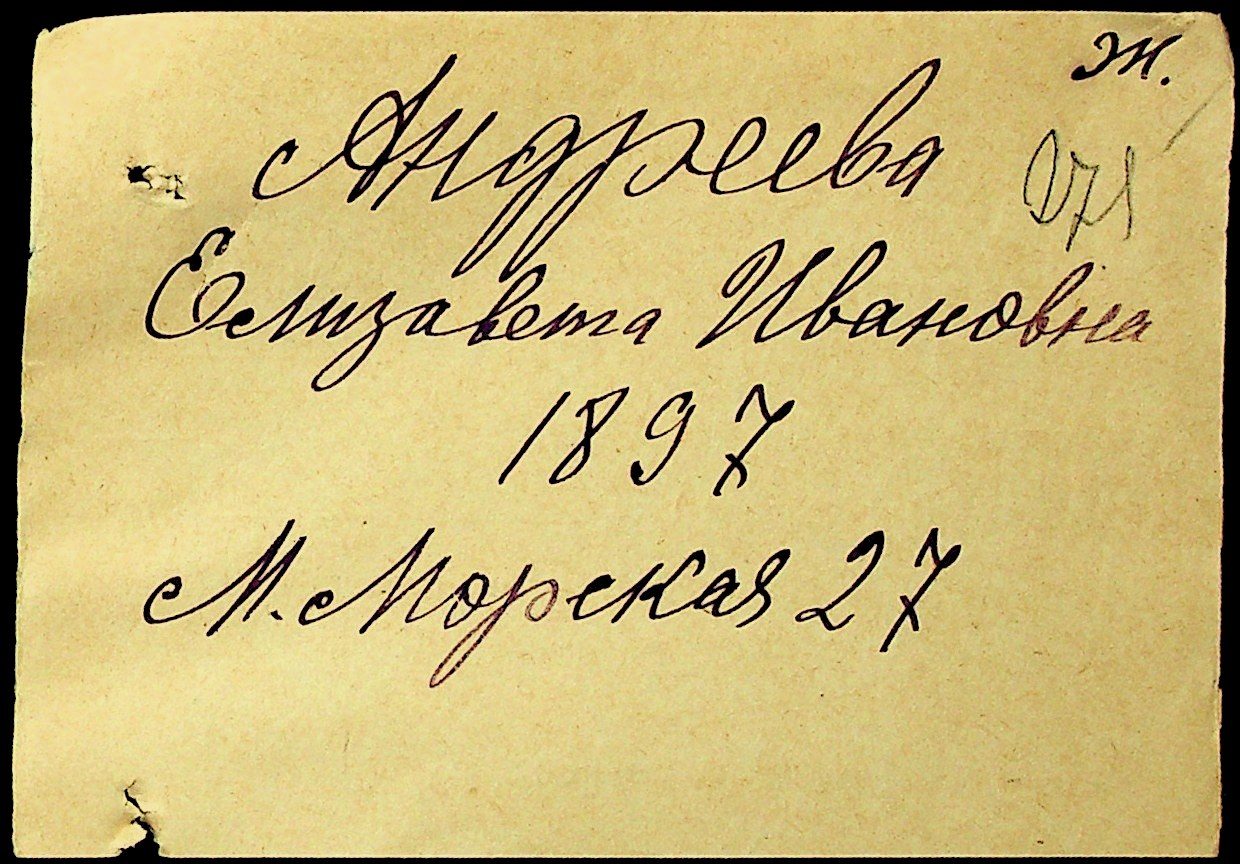 ж.
Андреева
Елизавета Ивановна
1897
М. Морская 27